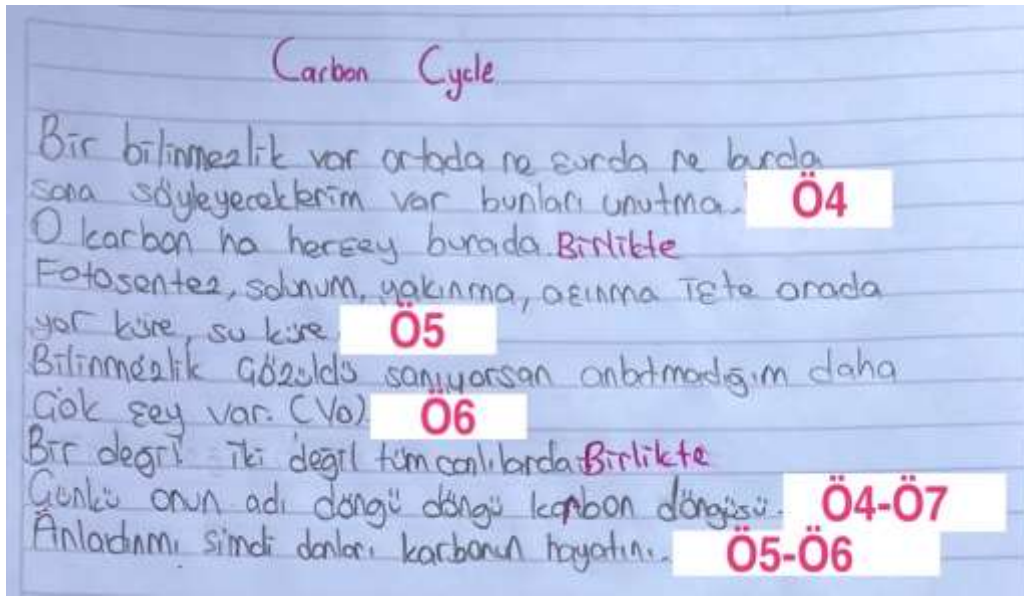 Carbon Cycle
Bir bilinmezlik var ortada ne şurda ne burda
sana söyleyeceklerim var bunları unutma. Ö4
O karbon ha herşey burada Birlikte
Fotosentez, solunum, yakınma, aşınma işte arada
yar küre, su küre Ö5
Bilinmezlik Gözüldü sanıyorsan anlatmadığım daha
Çok şey var. (Vo) Ö6
Bir değil iki değil tüm canlılarda Birlikte
Çünkü onun adı döngü döngü karbon döngüsü. Ö4-Ö7
Anladınmı şimdi karbonun hayatını. Ö5-Ö6